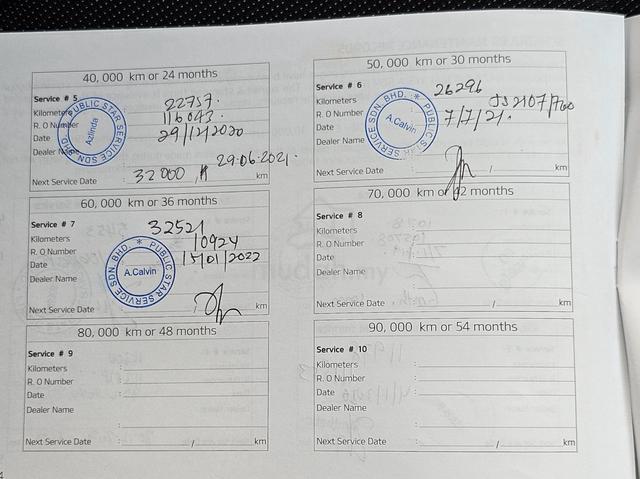 40, 000 km or 24 months
Service # 5
Kilometers 22757.
R. O Number 116043.
Date 29/12/2020
Dealer Name
PUBLIC STAR SERVICE SDN. BHD.
Azlinda
29.06.2021.
Next Service Date : 32000 / km
50, 000 km or 30 months
Service # 6
Kilometers 26296
R. O Number JJ2107/760
Date 7/7/21.
Dealer Name
PUBLIC STAR SERVICE SDN. BHD. *
A.Calvin
Next Service Date : / km
60, 000 km or 36 months
Service # 7
Kilometers 32521
R. O Number 10924
Date 15/01/2022
Dealer Name
PUBLIC STAR SERVICE SDN. BHD. *
A.Calvin
Next Service Date km
70, 000 km or 42 months
Service # 8
Kilometers :
R. O Number :
Date :
Dealer Name :
Next Service Date : / km
80, 000 km or 48 months
Service # 9
Kilometers :
R. O Number :
Date :
Dealer Name :
:
Next Service Date : / km
90, 000 km or 54 months
Service # 10
Kilometers :
R. O Number :
Date :
Dealer Name :
:
Next Service Date : / km